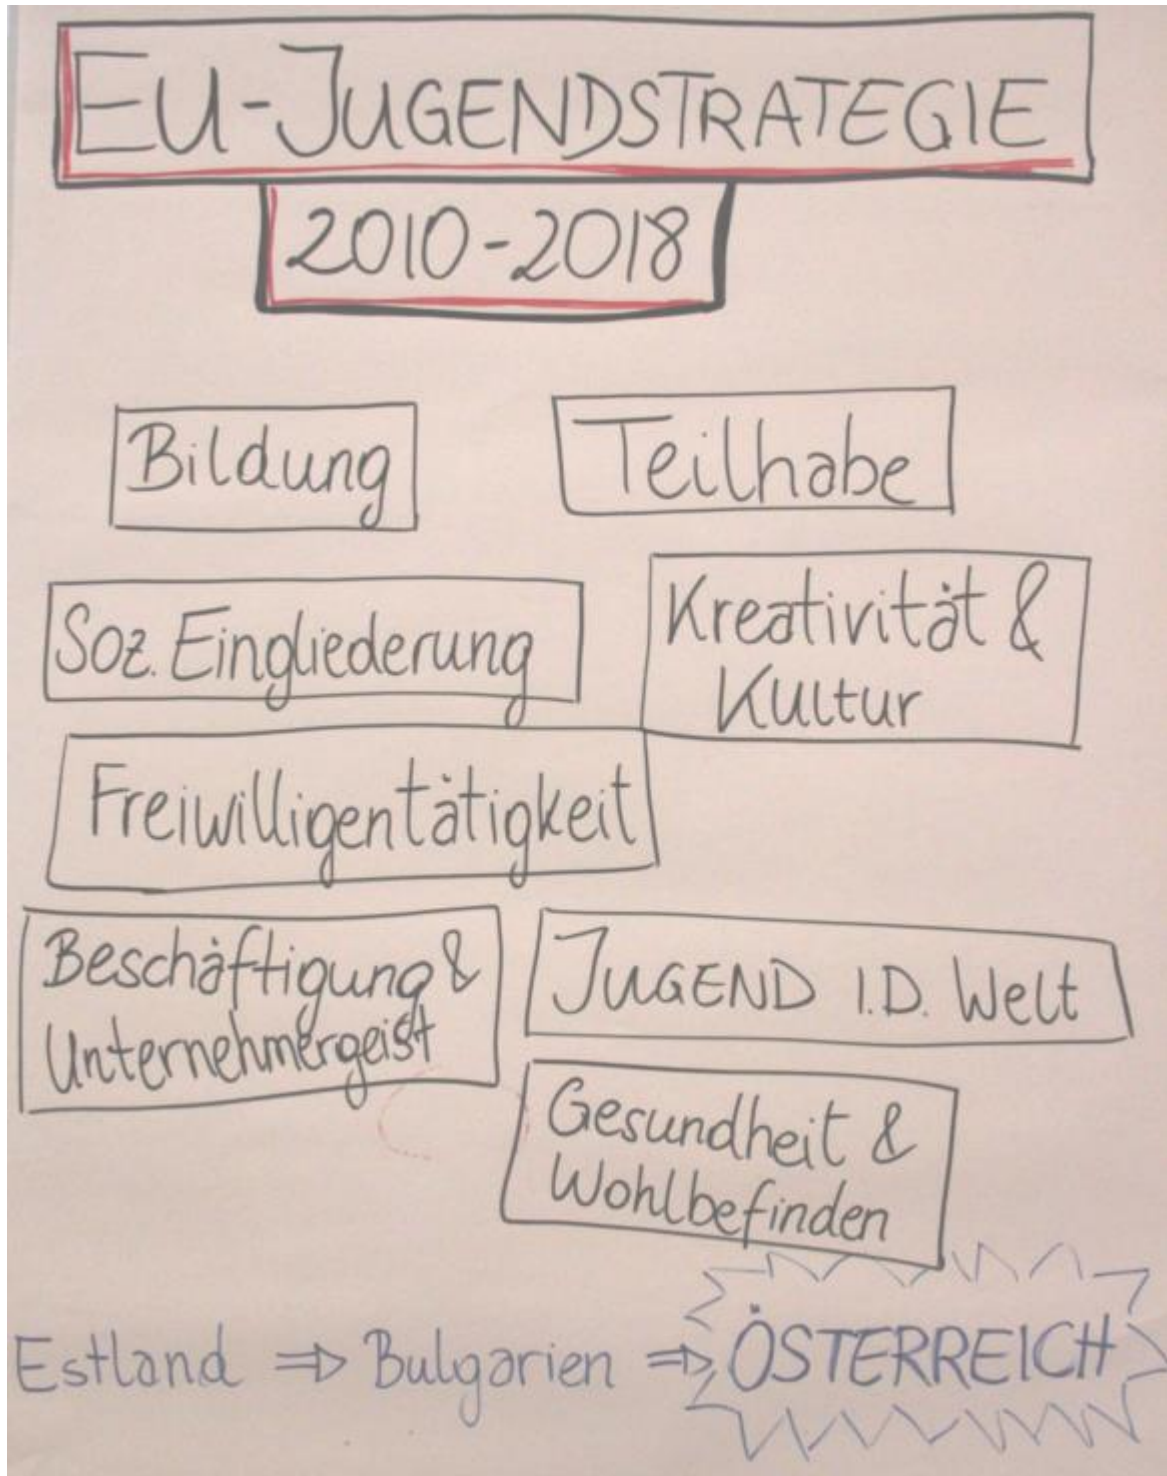 EU-JUGENDSTRATEGIE
2010-2018
Bildung
Teilhabe
Soz. Eingliederung
Kreativität &
Kultur
Freiwilligentätigkeit
Beschäftigung &
Unternehmergeist
JUGEND I.D. Welt
Gesundheit &
Wohlbefinden
Estland ⇒ Bulgarien ⇒ ÖSTERREICH